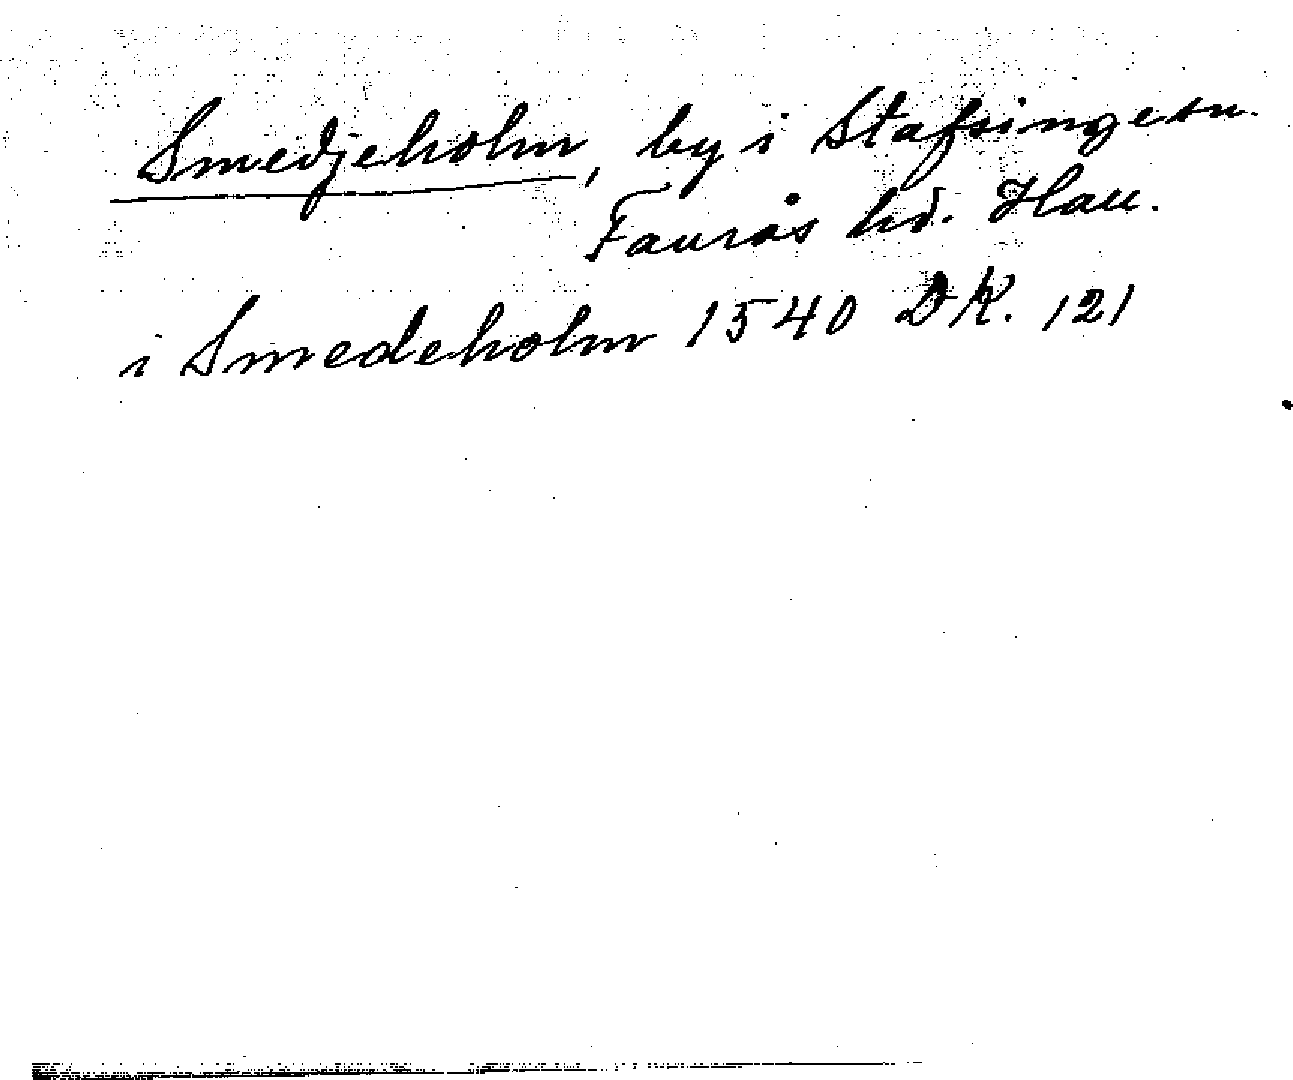 Smedjeholm, by i Stafsinge sn.
Faurås hd. Hall.
i Smedeholm 1540 DK. 121